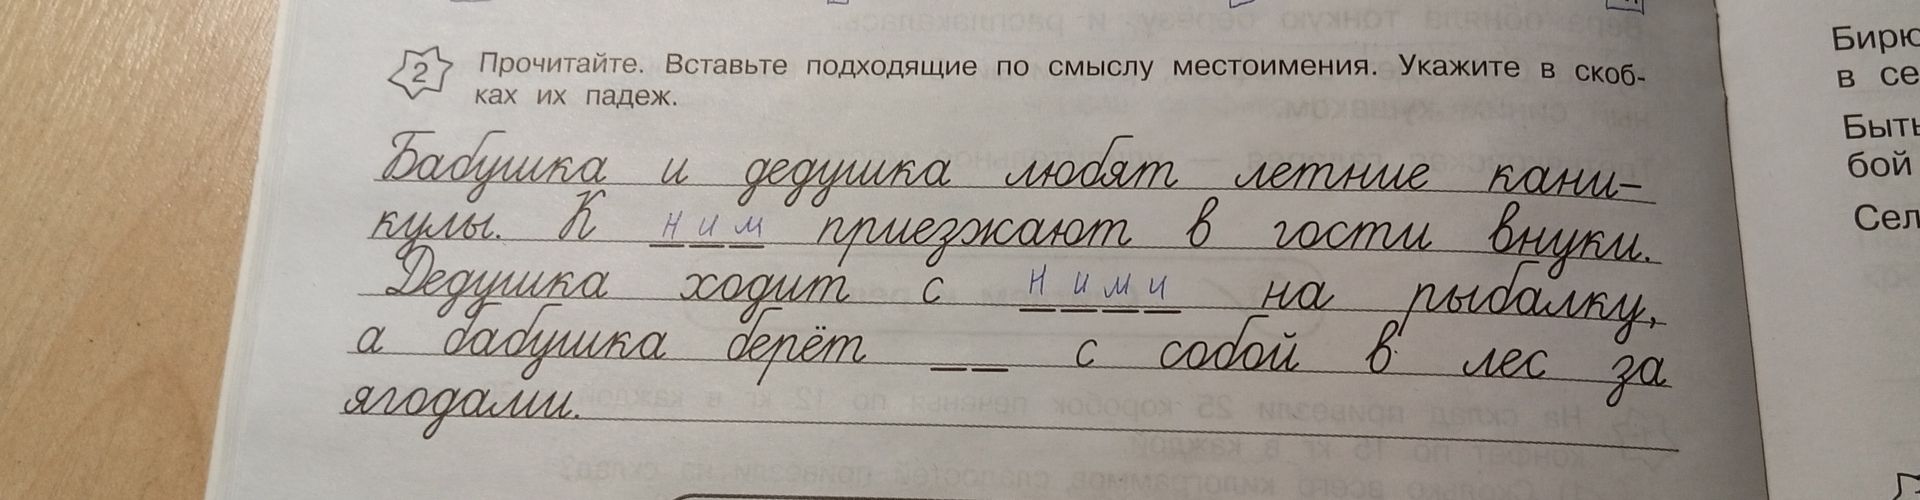 2 Прочитайте. Вставьте подходящие по смыслу местоимения. Укажите в скоб-
ках их падеж.
Бабушка и дедушка любят летние кани-
кулы. К ним приезжают в гости внуки.
Дедушка ходит с ними на рыбалку,
а бабушка берёт __ с собой в лес за
ягодами.
Бирю
в се
Быть
бой
Сел